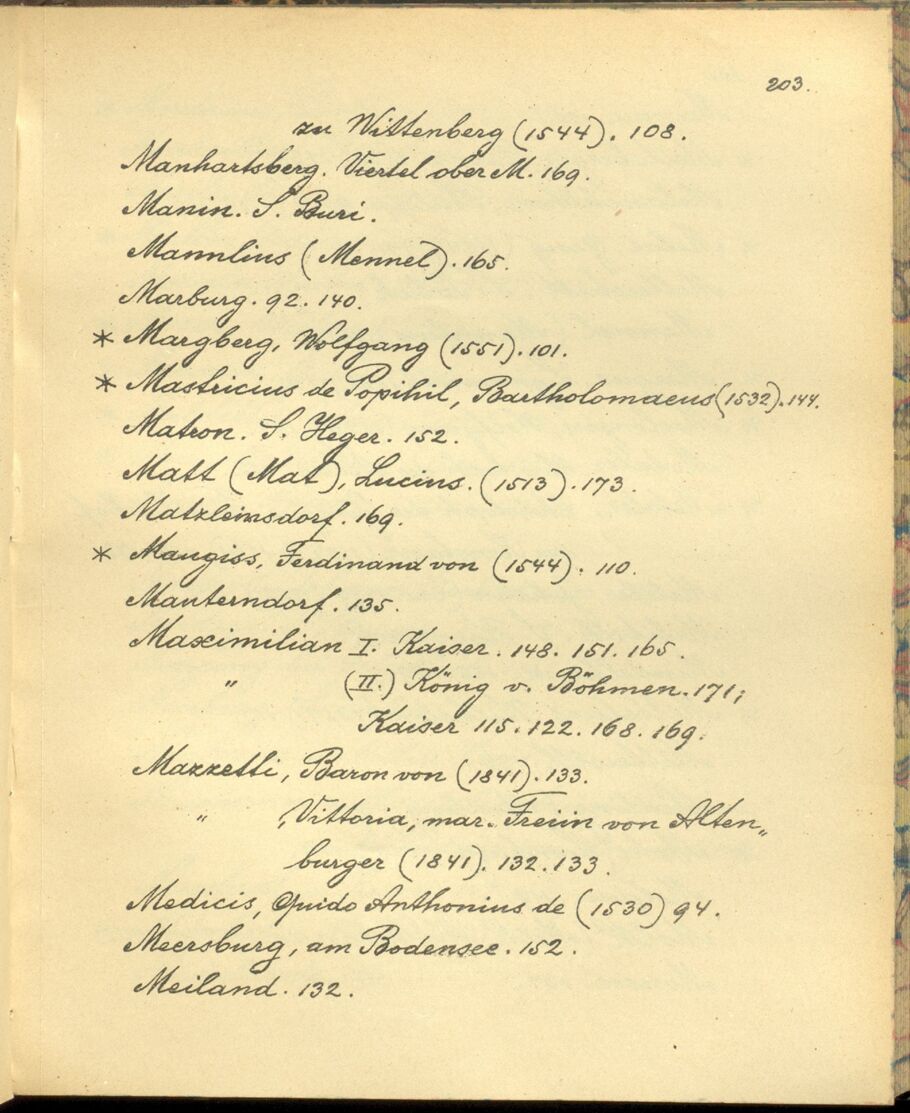 203.
zu Wittenberg (1544). 108.
Manhartsberg. Viertel ober M. 169.
Manin. S. Buri.
Mannlius (Mennel). 165.
Marburg. 92. 140.
* Margberg, Wolfgang (1551). 101.
* Mastricius de Popihil, Bartholomaeus (1532). 144.
Matron. S. Heger. 152.
Matt (Mat), Lucius. (1513). 173.
Matzleinsdorf. 169.
* Maugiss, Ferdinand von (1544). 110.
Mauterndorf. 135.
Maximilian I. Kaiser. 148. 151. 165.
" (II.) König v. Böhmen. 171;
Kaiser 115. 122. 168. 169.
Mazzetti, Baron von (1841). 133.
" , Vittoria, mar. Freiin von Alten„
burger (1841). 132. 133.
Medicis, Guido Anthonius de (1530) 94.
Meersburg, am Bodensee. 152.
Meiland. 132.